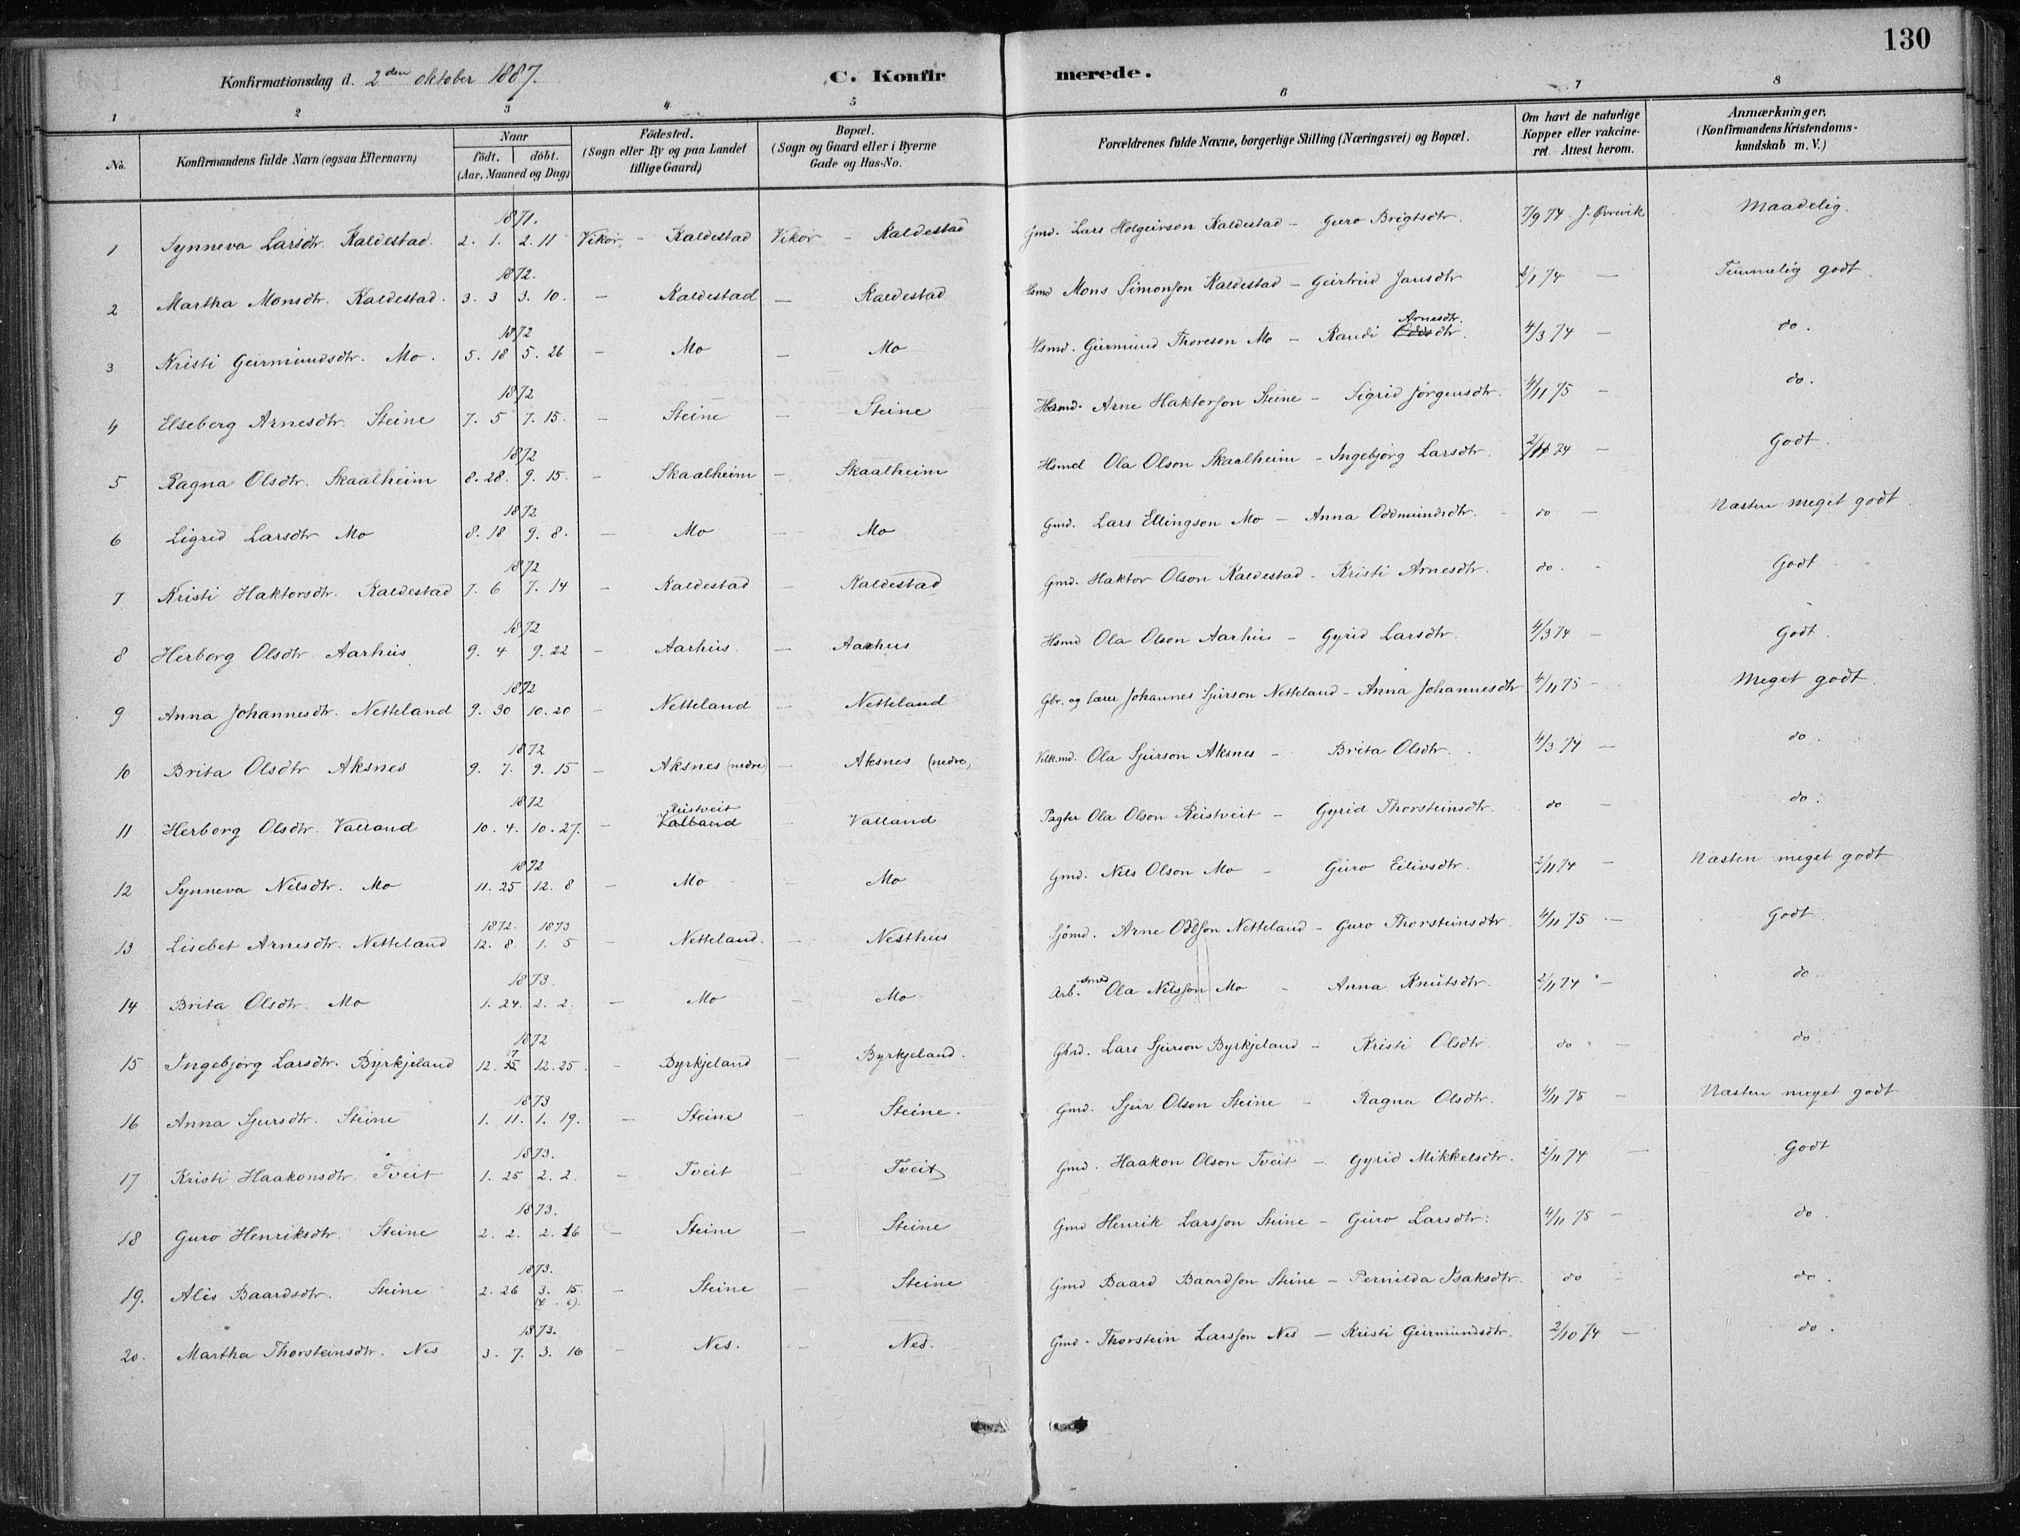 130
Konfirmationsdag d. 2den oktober 1887. C. Konfirmerede.
1 2 3 4 5 6 7 8
No. Konfirmandens fulde Navn (ogsaa Efternavn) Naar födt. döbt. (Aar, Maaned og Dag) Födested. (Sogn eller By og paa Landet tillige Gaard) Bopæl. (Sogn og Gaard eller i Byerne Gade og Hus-No. Forældrenes fulde Navne, borgerlige Stilling (Næringsvei) og Bopæl. Om havt de naturlige Kopper eller vakcineret. Attest herom. Anmærkninger. (Konfirmandens Kristendomskundskab m. V.)
1871.
1 Synneva Larsdtr. Kaldestad. 2. 1. 2. 11 Vikör. – Kaldestad Vikör – Kaldestad Gmd. Lars Holgeirson Kaldestad – Guro Brigtsdtr. 7/9 74 J. Övrevik Maadelig.
1872.
2 Martha Monsdtr. Kaldestad. 3. 3 3. 10. – Kaldestad – Kaldestad Hsmd Mons Simonson Kaldestad – Geirtrud Jansdtr 2/1 74 – Temmelig godt.
1872
3 Kristi Geirmundsdtr. Mo. 5. 18 5. 26 – Mo – Mo Hsmd. Geirmund Thoreson Mo – Randi Arnesdtr. 4/3 74 – do.
1872
4 Elseberg Arnesdtr. Steine 7. 5 7. 15. – Steine – Steine Hsmd. Arne Haktorson Steine – Sigrid Jörgensdtr. 4/11 75 – do.
1872
5 Ragna Olsdtr. Skaalheim 8. 28. 9. 15. – Skaalheim – Skaalheim Hsmd Ola Olson Skaalheim – Ingebjörg Larsdtr. 2/11 74 – Godt.
1872
6 Sigrid Larsdtr Mo 8. 18 9. 8. – Mo – Mo Gmd. Lars Ellingson Mo – Anna Oddmundsdtr. – do – Næsten meget godt.
1872
7 Kristi Haktorsdtr. Kaldestad 7. 6 7. 14 – Kaldestad – Kaldestad Gmd. Haktor Olson Kaldestad – Kristi Arnesdtr. do. - Godt
1872
8 Herborg Olsdtr. Aarhus 9. 4 9. 22 – Aarhus. – Aarhus Hsmd Ola Olson Aarhus – Gyrid Larsdtr. 4/3 74 – Godt.
1872
9 Anna Johannesdtr. Netteland 9. 30 10. 20 – Netteland – Netteland Gbr. og lærer Johannes Sjurson Netteland – Anna Johannesdtr 4/11 75 – Meget godt.
1872
10 Brita Olsdtr Aksnes 9. 7. 9. 15 – Aksnes (nedre) – Aksnes (nedre) Ola Sjurson Aksnes – Brita Olsdtr. 4/3 74 – do.
1872
11 Herborg Olsdtr. Valland 10. 4. 10. 27. – Reistveit Valland – Valland Pagter Ola Olson Reistveit – Gyrid Thorsteinsdtr. do – do.
1872
12 Synneva Nilsdtr. Mo 11. 25 12. 8 – Mo – Mo Gmd. Nils Olson Mo – Guro Eilivsdtr. 2/11 74 – Næsten meget godt.
1872. 1873
13 Lisebet Arnesdtr. Netteland 12. 8. 1. 5 – Netteland. – Nesthus Sjömd. Arne Oddson Netteland – Guro Thorsteinsdtr. 4/11 75 – Godt.
1873.
14 Brita Olsdtr. Mo 1. 24. 2. 2. – Mo – Mo. Arb.smd Ola Nilsson Mo – Anna Knutsdtr. 2/11 74 – do.
1872
15 Ingebjörg Larsdtr. Byrkjeland 12. 17 12. 25. – Byrkjeland – Byrkjeland. Gbrd. Lars Sjurson Byrkjeland – Kristi Olsdtr do – do.
1873
16 Anna Sjursdtr. Steine 1. 11. 1. 19. – Steine – Steine. Gmd. Sjur Olson Steine – Ragna Olsdtr. 4/11 75 – Næsten meget godt
1873.
17 Kristi Haakonsdtr. Tveit 1. 25 2. 2. – Tveit – Tveit Gmd. Haakon Olson Tveit – Gyrid Mikkelsdtr. 2/11 74 – Godt
1873.
18 Guro Henriksdtr. Steine 2. 2. 2. 16 – Steine – Steine Gmd Henrik Larsson Steine – Guro Larsdtr: 4/11 75 – do.
1873.
19. Alis Baardsdtr. Steine 2. 26 3. 15. (4. 6). – Steine – Steine Gmd Baard Baardson Steine – Pernilda Isaksdtr. do – do.
1873.
20. Martha Thorsteinsdtr. Nes 3. 7. 3. 16 – Nes. – Nes. Gmd. Thorstein Larsson Nes – Kristi Geirmundsdtr. 2/10 74 – do.